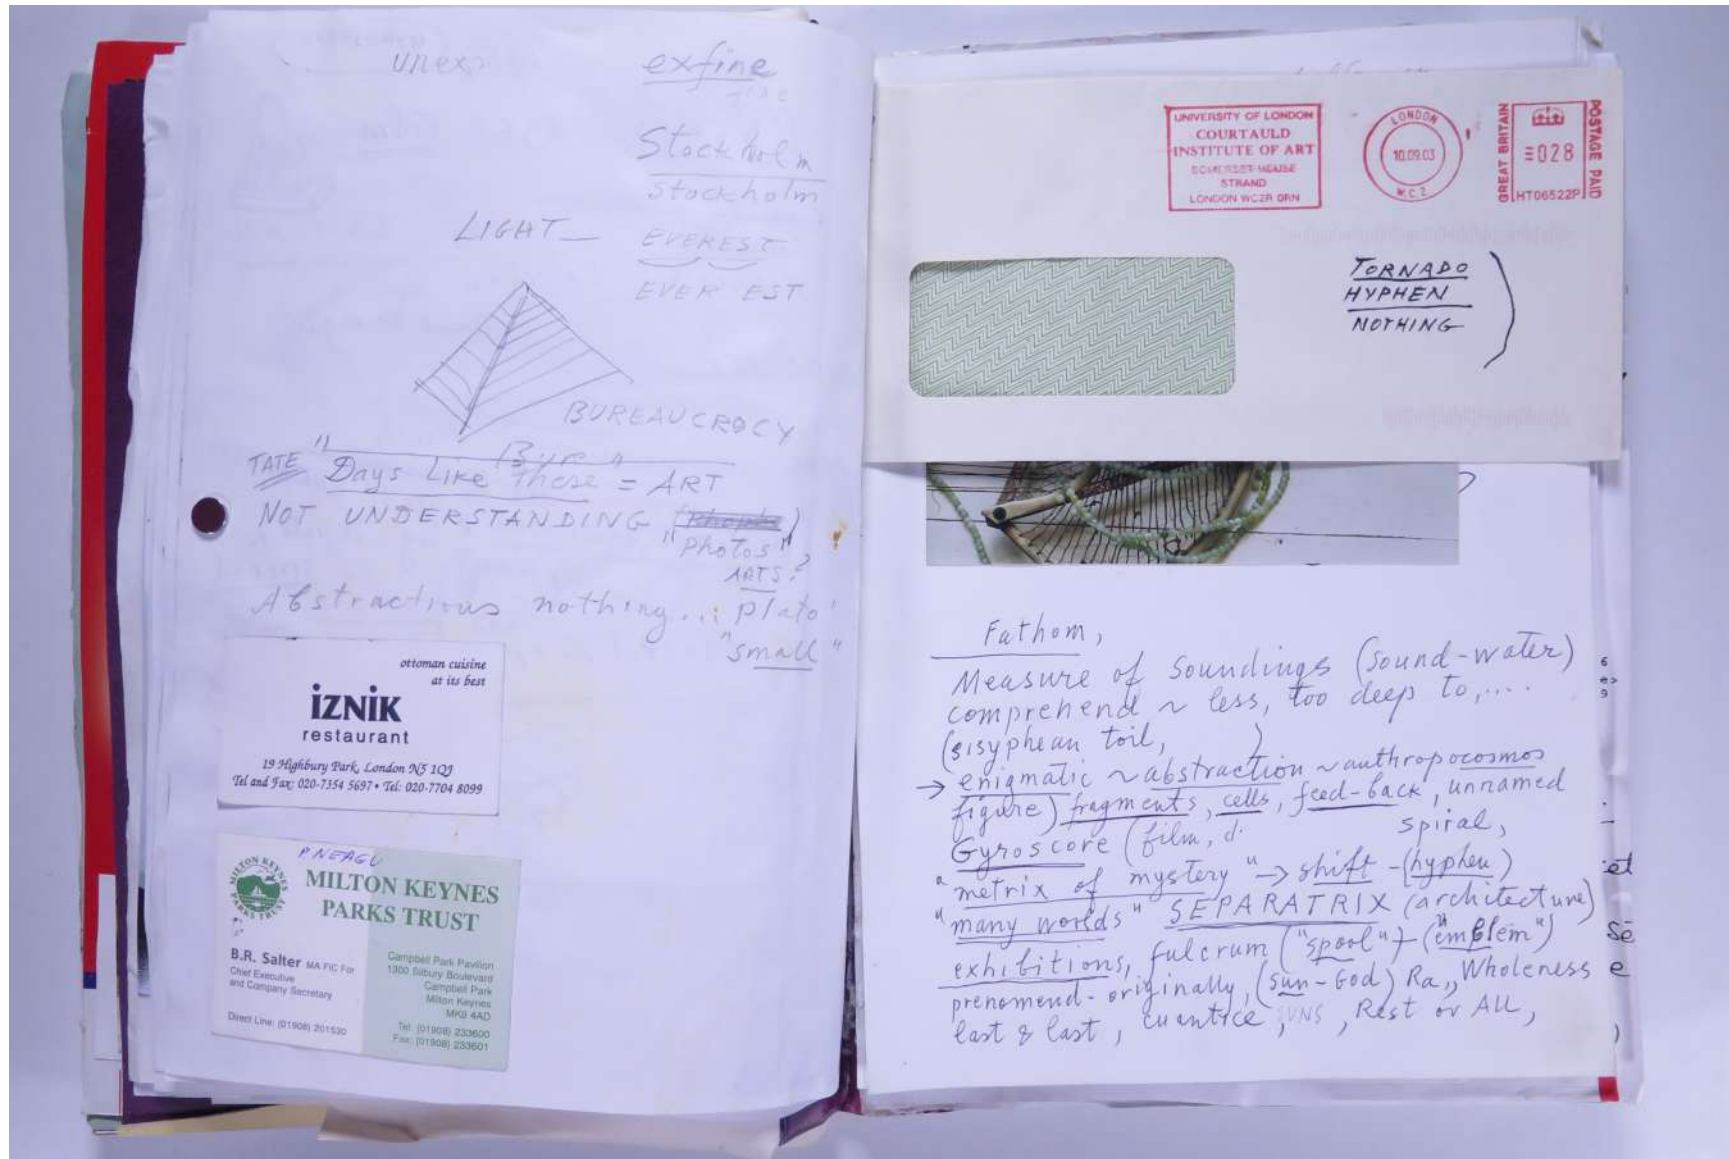 exfine
Stockholm
Stockholm
LIGHT —
EVEREST
EVER EST
BUREAUCROCY
TATE "Days Like these" = ART
NOT UNDERSTANDING
"Photos",
ARTS?
Abstractions nothing... plato
"small"
ottoman cuisine
at its best
iZNiK
restaurant
19 Highbury Park, London N5 1QJ
Tel and Fax: 020-7354 5697 • Tel: 020-7704 8099
P. NEAGU
MILTON KEYNES PARKS TRUST
MILTON KEYNES
PARKS TRUST
B.R. Salter MA FIC For
Chief Executive
and Company Secretary
Direct Line: (01908) 201530
Campbell Park Pavilion
1300 Silbury Boulevard
Campbell Park
Milton Keynes
MK9 4AD
Tel: (01908) 233600
Fax: (01908) 233601
UNIVERSITY OF LONDON
COURTAULD
INSTITUTE OF ART
SOMERSET HOUSE
STRAND
LONDON WC2R 0RN
LONDON
10.09.03
W.C.2
GREAT BRITAIN
028
HT06522P
POSTAGE PAID
TORNADO
HYPHEN
NOTHING
Fathom,
Measure of Soundings (sound-water)
comprehend ~ less, too deep to,....
(sisyphean toil, )
→ enigmatic ~ abstraction ~ anthropocosmos
figure) fragments, cells, feed-back, unnamed
Gyroscore (film, d. spiral,
"metrix of mystery" → shift - (hyphen)
"many worlds" SEPARATRIX (architecture)
exhibitions, fulcrum ("spool") - ("emblem")
prenomend - originally, (sun-God) Ra,, Wholeness
last & last, cuantice, SUNS, Rest or All,